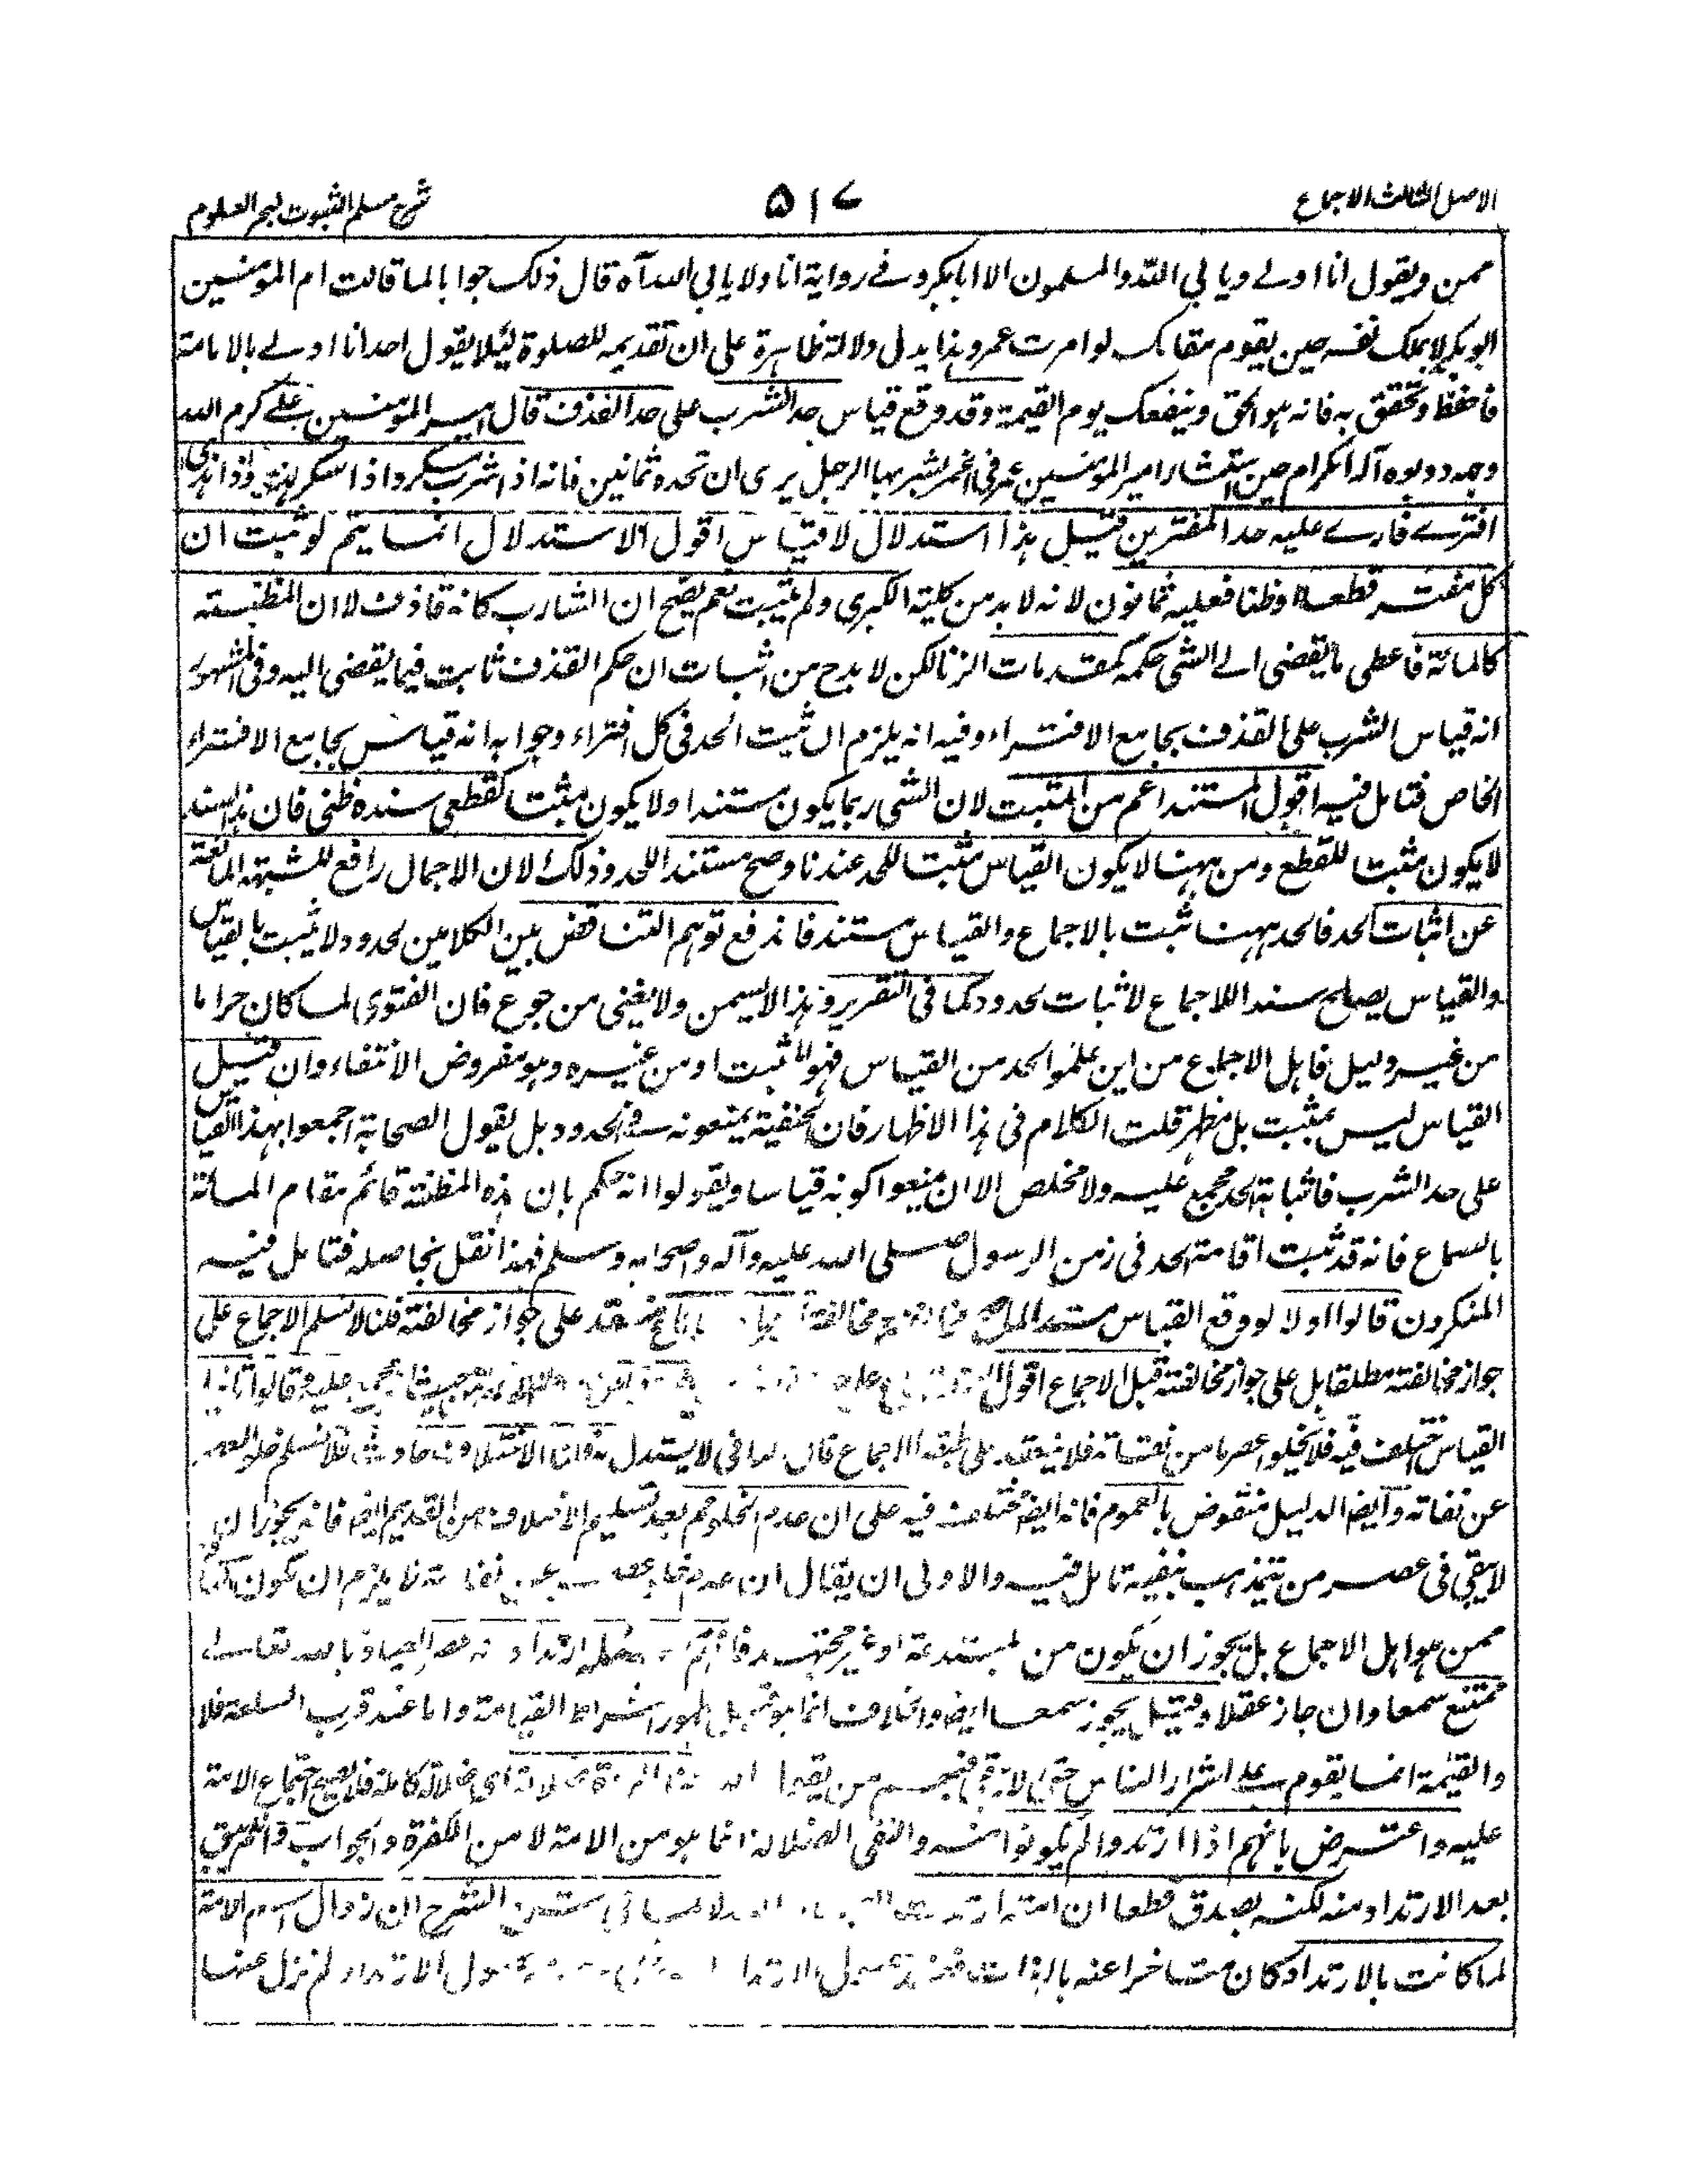 الاصل الثالث الاجماع
۵۱۷
شرح مسلم الثبوت لبحر العلوم
ممن ويقول انا اولے ويابى اللّٰه والمسلمون الا ابابكر وفے رواية انا ولا يابى اللّٰه آه قال ذلك جوابا لما قالت ام المؤمنين
ابوبكر لا يملك نفسه حين يقوم مقامك لو امرت عمر وهذا يدل دلالة ظاهرة على ان تقديمه للصلوة لئلا يقول احد انا اولے بالامامة
فاحفظ وتحقق به فانه هو الحق وينفعك يوم القيمة وقد وقع قياس حد الشرب على حد القذف قال امير المؤمنين علے كرم اللّٰه
وجهه ووجوه آله الكرام حين استشار امير المؤمنين عمر فى الخمر يشربها الرجل يرى ان تحده ثمانين فانه اذا شرب سكر واذا سكر هذى واذا هذى
افترے فارے عليه حد المفترين قيل هذا استدلال لا قياس اقول الاستدلال انما يتم لو ثبت ان
كل مفتر قطعا او ظنا فعليه ثمانون لانه لا بد من كلية الكبرى ولم يثبت نعم يصح ان الشارب كانه قاذف لا ان المظنة
كالمائة فاعطى ما يفضى الے الشى حكمه كمقدمات الزنا لكن لا بد ح من اثبات ان حكم القذف ثابت فيما يفضى اليه وفى المشهور
انه قياس الشرب على القذف بجامع الافتراء وفيه انه يلزم ان يثبت الحد فى كل افتراء وجوابه انه قياس بجامع الافتراء
الخاص فتامل فيه اقول المستند اعم من المثبت لان الشى ربما يكون مستندا ولا يكون مثبت لقطعى سنده ظنى فان هذا السند
لا يكون مثبت للقطع ومن ههنا لا يكون القياس مثبت للحد عندنا وصح مستند اللحد وذلك لان الاجمال رافع للشبهة المانعة
عن اثبات الحد فالحد ههنا ثبت بالاجماع والقياس مستند فاندفع توهم التناقض بين الكلامين لحدود لا يثبت بالقياس
والقياس يصلح سندا للاجماع لاثبات لحدود كما فى التقرير وهذا لا يسمن ولا يغنى من جوع فان الفتوى لما كان حراما
من غير دليل فاهل الاجماع من اين علموا الحد من القياس فهو المثبت او من غيره وهو مفروض الانتفاء وان قيل
القياس ليس بمثبت بل مظهر قلت الكلام فى هذا الاظهار فان الحنفية يمنعونه فے الحدود بل يقول الصحابة اجمعوا بهذا القياس
على حد الشرب فاثباته الحد مجمع عليه ولا مخلص الا ان يمنعوا كونه قياسا ويقولوا انه حكم بان هذه المظنة قائم مقام المسألة
بالسماع فانه قد ثبت اقامة الحد فى زمن الرسول صلى اللّٰه عليه وآله واصحابه وسلم فهذا نقل بحاصله فتامل فيه
المنكرون قالوا اولا لو وقع القياس مستندا مخالفة على جواز مخالفته قلنا لا نسلم الاجماع على
جواز مخالفته مطلقا بل على جواز مخالفته قبل الاجماع اقول وقالوا ثانيا
القياس مختلف فيه فلا يخلو عصر ما من نفاته فلا ينعقد الاجماع فلا نسلم
عن نفاته وايضا الدليل منقوض بالعموم فانه ايضا مختلف فيه على ان عدم الخلو ثم بعد تسليم الاختلاف من القديم ايضا فانه يجوز ان
لا يبقى فى عصر من يتمذهب بنفيه تامل فيه والاولى ان يقال ان عدم نفاته لا يلزم ان يكون
ممن هو اهل الاجماع بل يجوز ان يكون من المبتدعة او غير مجتهد ارتداد العياذ باللّٰه تعالے
ممتنع سمعا وان جاز عقلا وقيل يجوز سمعا ايضا والخلاف انما هو قبل ظهور اشراط القيامة واما عند قرب الساعة فلا
والقيمة انما يقوم على اشرار الناس من يقول ضلالة كاملة فلا يصح اجتماع الامة
عليه واعترض بانهم اذا ارتدوا لم يكونوا امته والنفى الضلالة انما هو من الامة لا من الكفرة والجواب
بعد الارتداد منه لكنه يصدق قطعا ان امته ارتدت الشرح ان زوال اسم الامة
لما كانت بالارتداد كان متاخرا عنه بالذات الارتداد لم يزل عنها